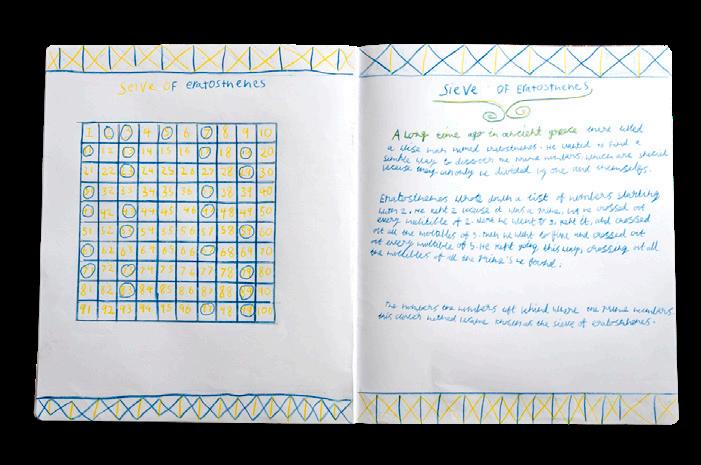 Seive OF eratosthenes
1 2 3 4 5 6 7 8 9 10
11 12 13 14 15 16 17 18 19 20
21 22 23 24 25 26 27 28 29 30
31 32 33 34 35 36 37 38 39 40
41 42 43 44 45 46 47 48 49 50
51 52 53 54 55 56 57 58 59 60
61 62 63 64 65 66 67 68 69 70
71 72 73 74 75 76 77 78 79 80
81 82 83 84 85 86 87 88 89 90
91 92 93 94 95 96 97 98 99 100
Sieve OF Eratosthenes
A long time ago in ancient greece there
a wise man named eratosthenes. He wanted to find a
simple way to discover the Prime numbers, which are special
only be divided by one and themselfs.
Eratosthenes wrote down a list of numbers starting
with 2. He kept 2 because it was a Prime, but he crossed out
every multiple of 2. he went to 3, kept it, and crossed
out all the multiples of 3. then he went to five and crossed out
out every multiple of 5. He kept going this way, crossing out all
the multiples of all the Prime's he found.
The numbers the numbers left behind where the Prime numbers
this clever method became known as the sieve of eratosthenes.